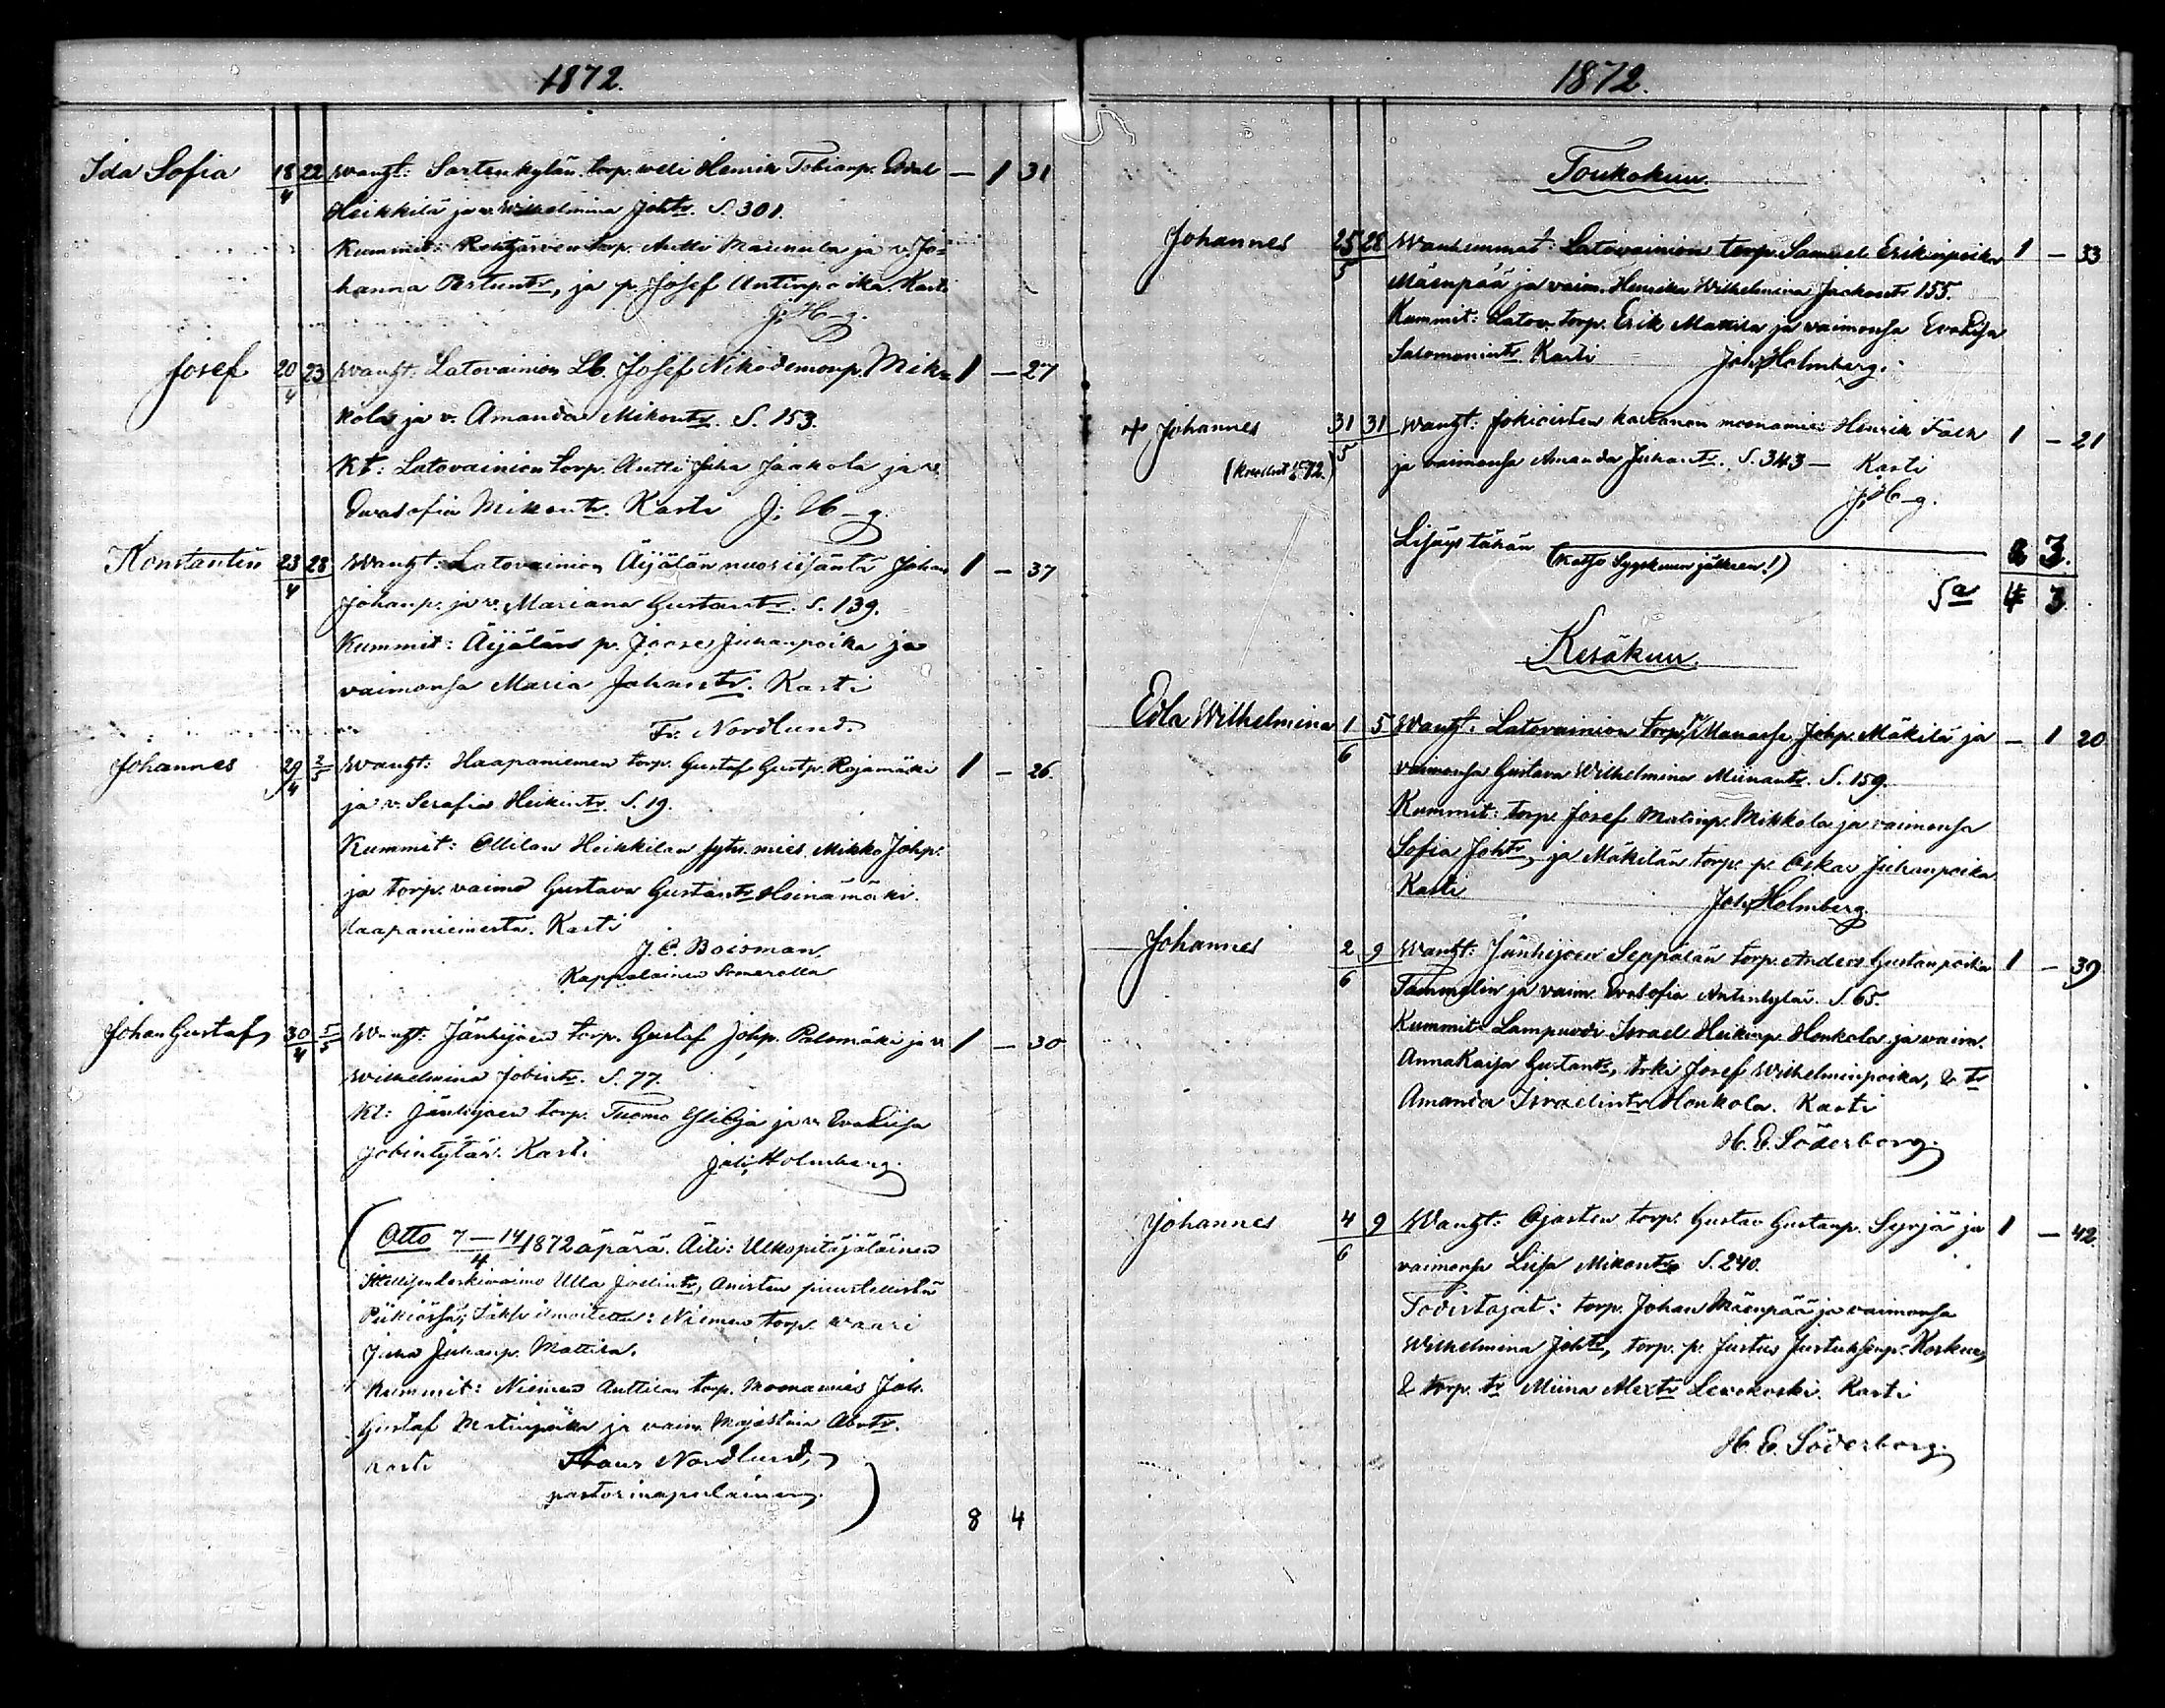 1872.
Ida Sofia 18/4 22 Wanht: Sarten kylän torp. weli Henrik Tobianp. — 1 31
Heikkilä ja v. Wilhelmina Johtr. S. 301.
Kummit: torp. Antti Maunula ja v. Jo=
hanna, ja p. Josef Antinpoika. Kasti
J. H–g.
Josef 20/4 23 Wanht: Latovainion Lb. Josef Nikodemonp. Mik= 1 — 27
kola ja v. Amanda Mikontr. S. 153.
Kt: Latovainion torp. Antti Juha Jaakola ja v.
Evasofia Mikontr. Kasti J. H–g.
Konstantin 23/4 28 Wanht: Latovainion Äijälän nuori isäntä Johan 1 — 37
Johanp. ja v. Mariana Gustantr. S. 139.
Kummit: Äijälän p. Joose Juhanpoika ja
vaimonsa Maria Johantr. Kasti
Fr. Nordlund.
Johannes 29/4 2/5 Wanht: Haapaniemen torp. Gustaf Gustp. Rajamäki 1 — 26
ja v. Serafia Heikintr. S. 19.
Kummit: Ollilan Heikkilan mies Mikko Johp.
ja torp. vaimo Gustava Gustantr Heinämäki
Haapaniemestä. Kasti
J. E. Boisman,
Kappalainen Somerolla
Johan Gustaf 30/4 5/5 Wanht: Jänhijoen torp. Gustaf Johp. Palomäki ja v. 1 — 30
Wilhelmina Jobintr. S. 77.
Kt: Jänhijoen torp. Tuomo Ylioja ja v. Eva Liisa
Jobintytär. Kasti Joh. Holmberg.
(Otto 7–14/4 1872 äpärä. Äiti: Ulkopitäjäläinen
leskivaimo Ulla Joelintr, puustellista
Piikiössä; Isäksi ilmoitettu: Niemen torp. waari
Juha Juhanp. Mattila.
Kummit: Niemen Anttilan torp. Moonamies Joh.
Gustaf Matinpoika ja vaim. Majastina Abrtr.
Kasti Frans Nordlund,
pastorinapulainen.)
8 4
1872.
Toukokuu.
Johannes 25/5 28 Wanhemmat: Latovainion torp. Samuel Erikinpoika 1 — 33
Mäenpää ja vaim. Henrika Wilhelmina Jaakontr 155.
Kummit: Latov. torp. Erik Mattila ja vaimonsa Eva Lisa
Salomonintr. Kasti Joh. Holmberg.
+ Johannes 31/5 31 Wanht: Jokioisten kartanon moonamies Henrik Falk 1 — 21
(kuollut 72.) ja vaimonsa Amanda Juhantr. S. 343 – Kasti
J. H–g.
Lisäys tähän (katso Syyskuun jälkeen!) 2 3.
Sa 4 3
Kesäkuu.
Edla Wilhelmina 1/6 5 Wanht. Latovainion torp. v. Manasse Johp. Mäkilä ja — 1 20
vaimonsa Gustava Wilhelmina Miinantr. S. 159.
Kummit: torp. Josef Matinp. Mikkola ja vaimonsa
Sofia Johtr, ja Mäkilän torp. p. Oskar Juhanpoika
Kasti Joh. Holmberg.
Johannes 2/6 9 Wanht: Jänhijoen Seppälän torp. Anders Gustanpoika 1 — 39
Tammelin ja vaim. Evasofia Antintytär. S. 65.
Kummit: Lampuodi Israel Heikinp. Honkola ja vaim.
AnnaKaisa Gustantr, trki Josef Wilhelminpoika, & tr
Amanda Israelintr Honkola. Kasti
H. E. Söderborg.
Johannes 4/6 9 Wanht: Ojasten torp. Gustav Gustanp. Syrjä ja 1 — 42.
vaimonsa Liisa Mikontr S. 240.
Todistajat: torp. Johan Mäenpää ja vaimonsa
Wilhelmina Johtr, torp. p. Justus Justuksenp. Koskue,
& torp. tr Miina Alextr Levokoski. Kasti
H. E. Söderborg.